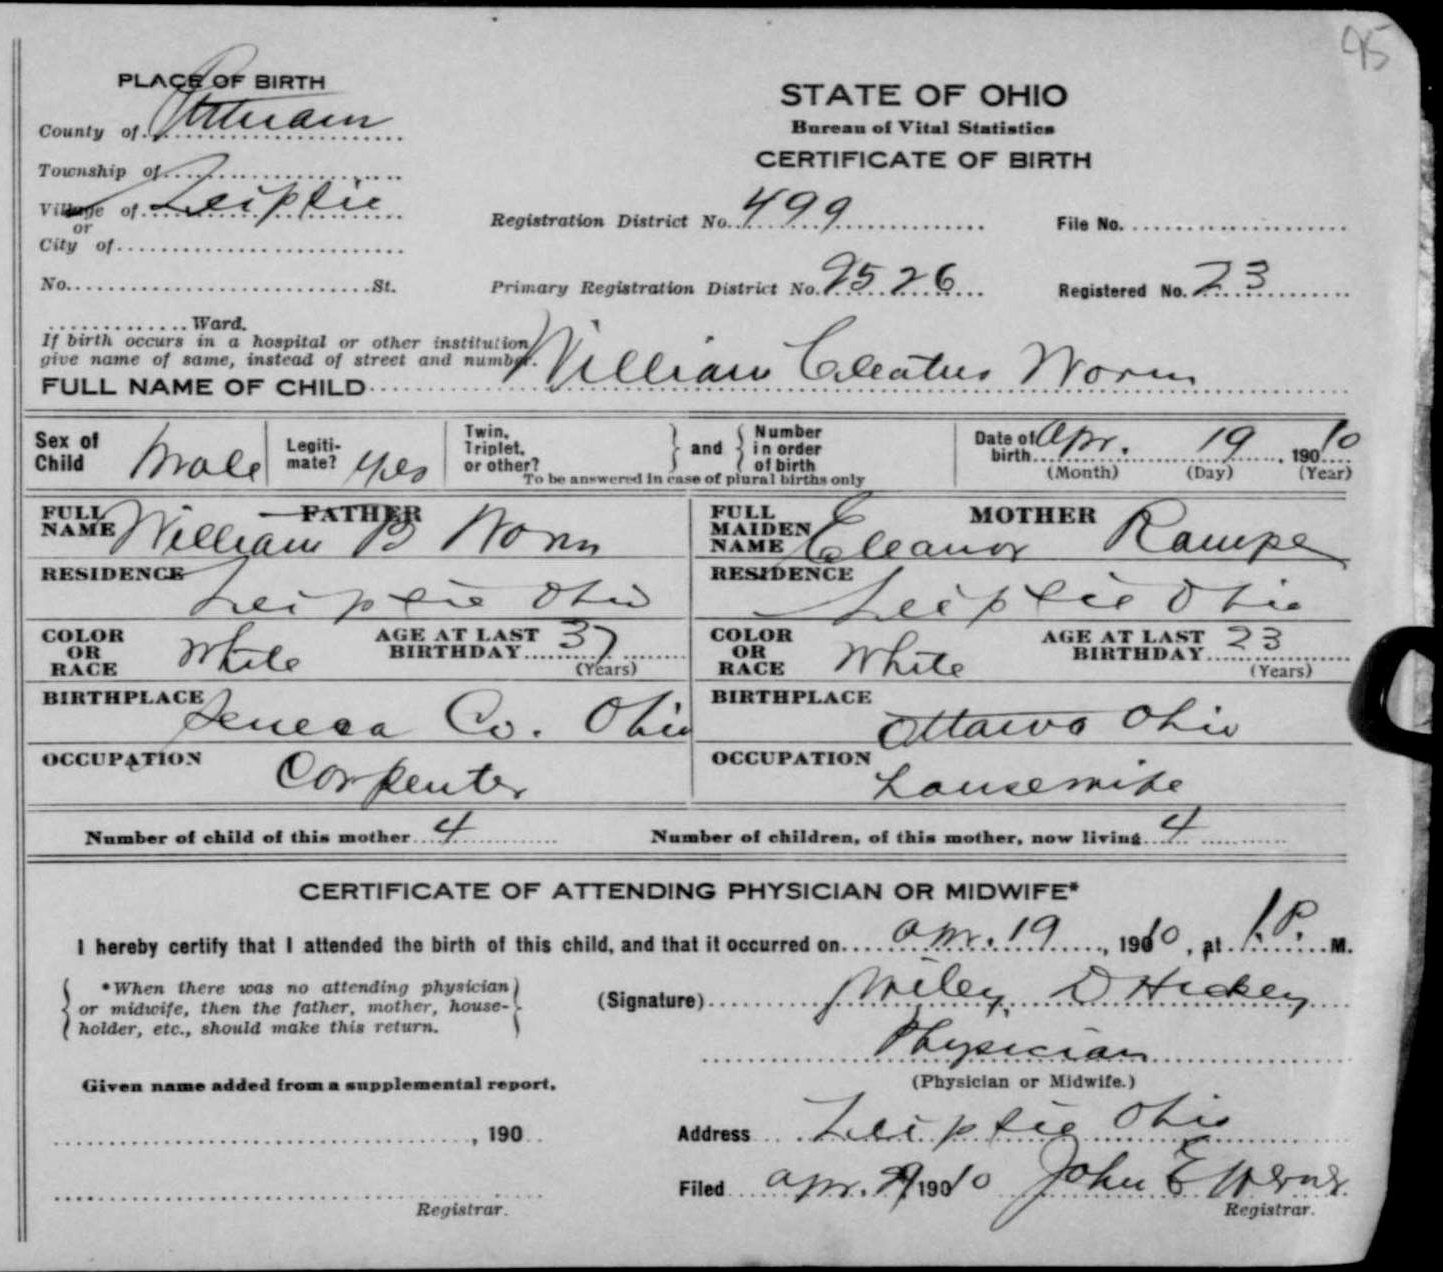 95
PLACE OF BIRTH
County of Putnam
Township of
Village of Leipsic
or
City of
No. St.
Ward.
If birth occurs in a hospital or other institution
give name of same, instead of street and number.
STATE OF OHIO
Bureau of Vital Statistics
CERTIFICATE OF BIRTH
Registration District No. 499
File No.
Primary Registration District No. 9526
Registered No. 23
FULL NAME OF CHILD William Cleatus Worm
Sex of Child Male
Legiti-mate? yes
Twin, Triplet, or other? and Number in order of birth
To be answered in case of plural births only
Date of birth Apr. 19, 1910
(Month) (Day) (Year)
FATHER
FULL NAME William B Worm
RESIDENCE Leipsic Ohio
COLOR OR RACE White
AGE AT LAST BIRTHDAY 37
(Years)
BIRTHPLACE Seneca Co. Ohio
OCCUPATION Carpenter
MOTHER
FULL MAIDEN NAME Eleanor Rampe
RESIDENCE Leipsic Ohio
COLOR OR RACE White
AGE AT LAST BIRTHDAY 23
(Years)
BIRTHPLACE Ottawa Ohio
OCCUPATION housewife
Number of child of this mother 4
Number of children, of this mother, now living 4
CERTIFICATE OF ATTENDING PHYSICIAN OR MIDWIFE*
I hereby certify that I attended the birth of this child, and that it occurred on Apr. 19, 1910, at 1. P. M.
*When there was no attending physician
or midwife, then the father, mother, house-
holder, etc., should make this return.
(Signature) Wiley D Hickey
Physician
(Physician or Midwife.)
Given name added from a supplemental report.
, 190
Registrar.
Address Leipsic Ohio
Filed Apr. 1910 John E Werner
Registrar.